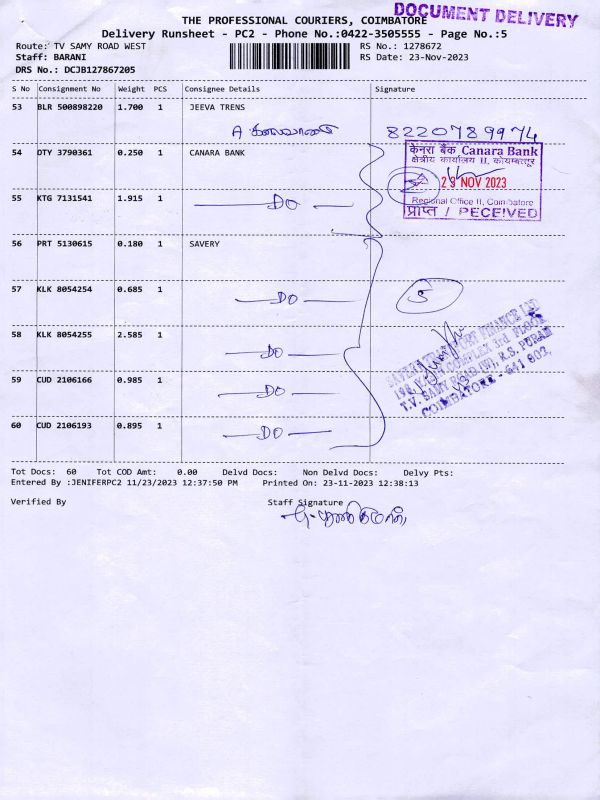 THE PROFESSIONAL COURIERS, COIMBATORE
DOCUMENT DELIVERY
Delivery Runsheet - PC2 - Phone No.:0422-3505555 - Page No.:5
Route: TV SAMY ROAD WEST
RS No.: 1278672
Staff: BARANI
RS Date: 23-Nov-2023
DRS No.: DCJB127867205
S No Consignment No Weight PCS Consignee Details Signature
53 BLR 500898220 1.700 1 JEEVA TRENS
8220789974
54 DTY 3790361 0.250 1 CANARA BANK
केनरा बैंक Canara Bank
क्षेत्रीय कार्यालय II, कोयम्बत्तूर
23 NOV 2023
Regional Office II, Coimbatore
प्राप्त / RECEIVED
55 KTG 7131541 1.915 1 DO
56 PRT 5130615 0.180 1 SAVERY
57 KLK 8054254 0.685 1 DO
5
58 KLK 8054255 2.585 1 DO
FINANCE LTD
COMPLEX 3rd FLOOR
T.V. SAMY ROAD (W), R.S. PURAM
COIMBATORE - 641 002.
59 CUD 2106166 0.985 1 DO
60 CUD 2106193 0.895 1 DO
Tot Docs: 60 Tot COD Amt: 0.00 Delvd Docs: Non Delvd Docs: Delvy Pts:
Entered By :JENIFERPC2 11/23/2023 12:37:50 PM Printed On: 23-11-2023 12:38:13
Verified By
Staff Signature